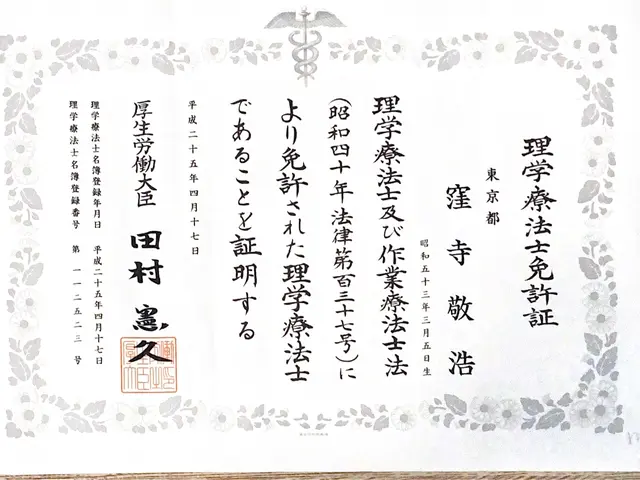 理学療法士免許証
東京都
窪寺敬浩
昭和五十三年三月五日生
理学療法士及び作業療法士法
(昭和四十年法律第百三十七号)に
より免許された理学療法士
であることを証明する
平成二十五年四月十七日
厚生労働大臣 田村憲久
理学療法士名簿登録年月日 平成二十五年四月十七日
理学療法士名簿登録番号 第一一二五二三号